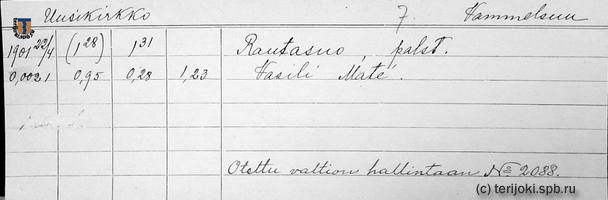 Uusikirkko 7. Vammelsuu
1901 22/4 (1 28) 1 31 Rautasuo, palst.
0,0021 0,95 0,28 1,23 Vasili Maté.
Otettu valtion hallintaan No 2088.
(c) terijoki.spb.ru